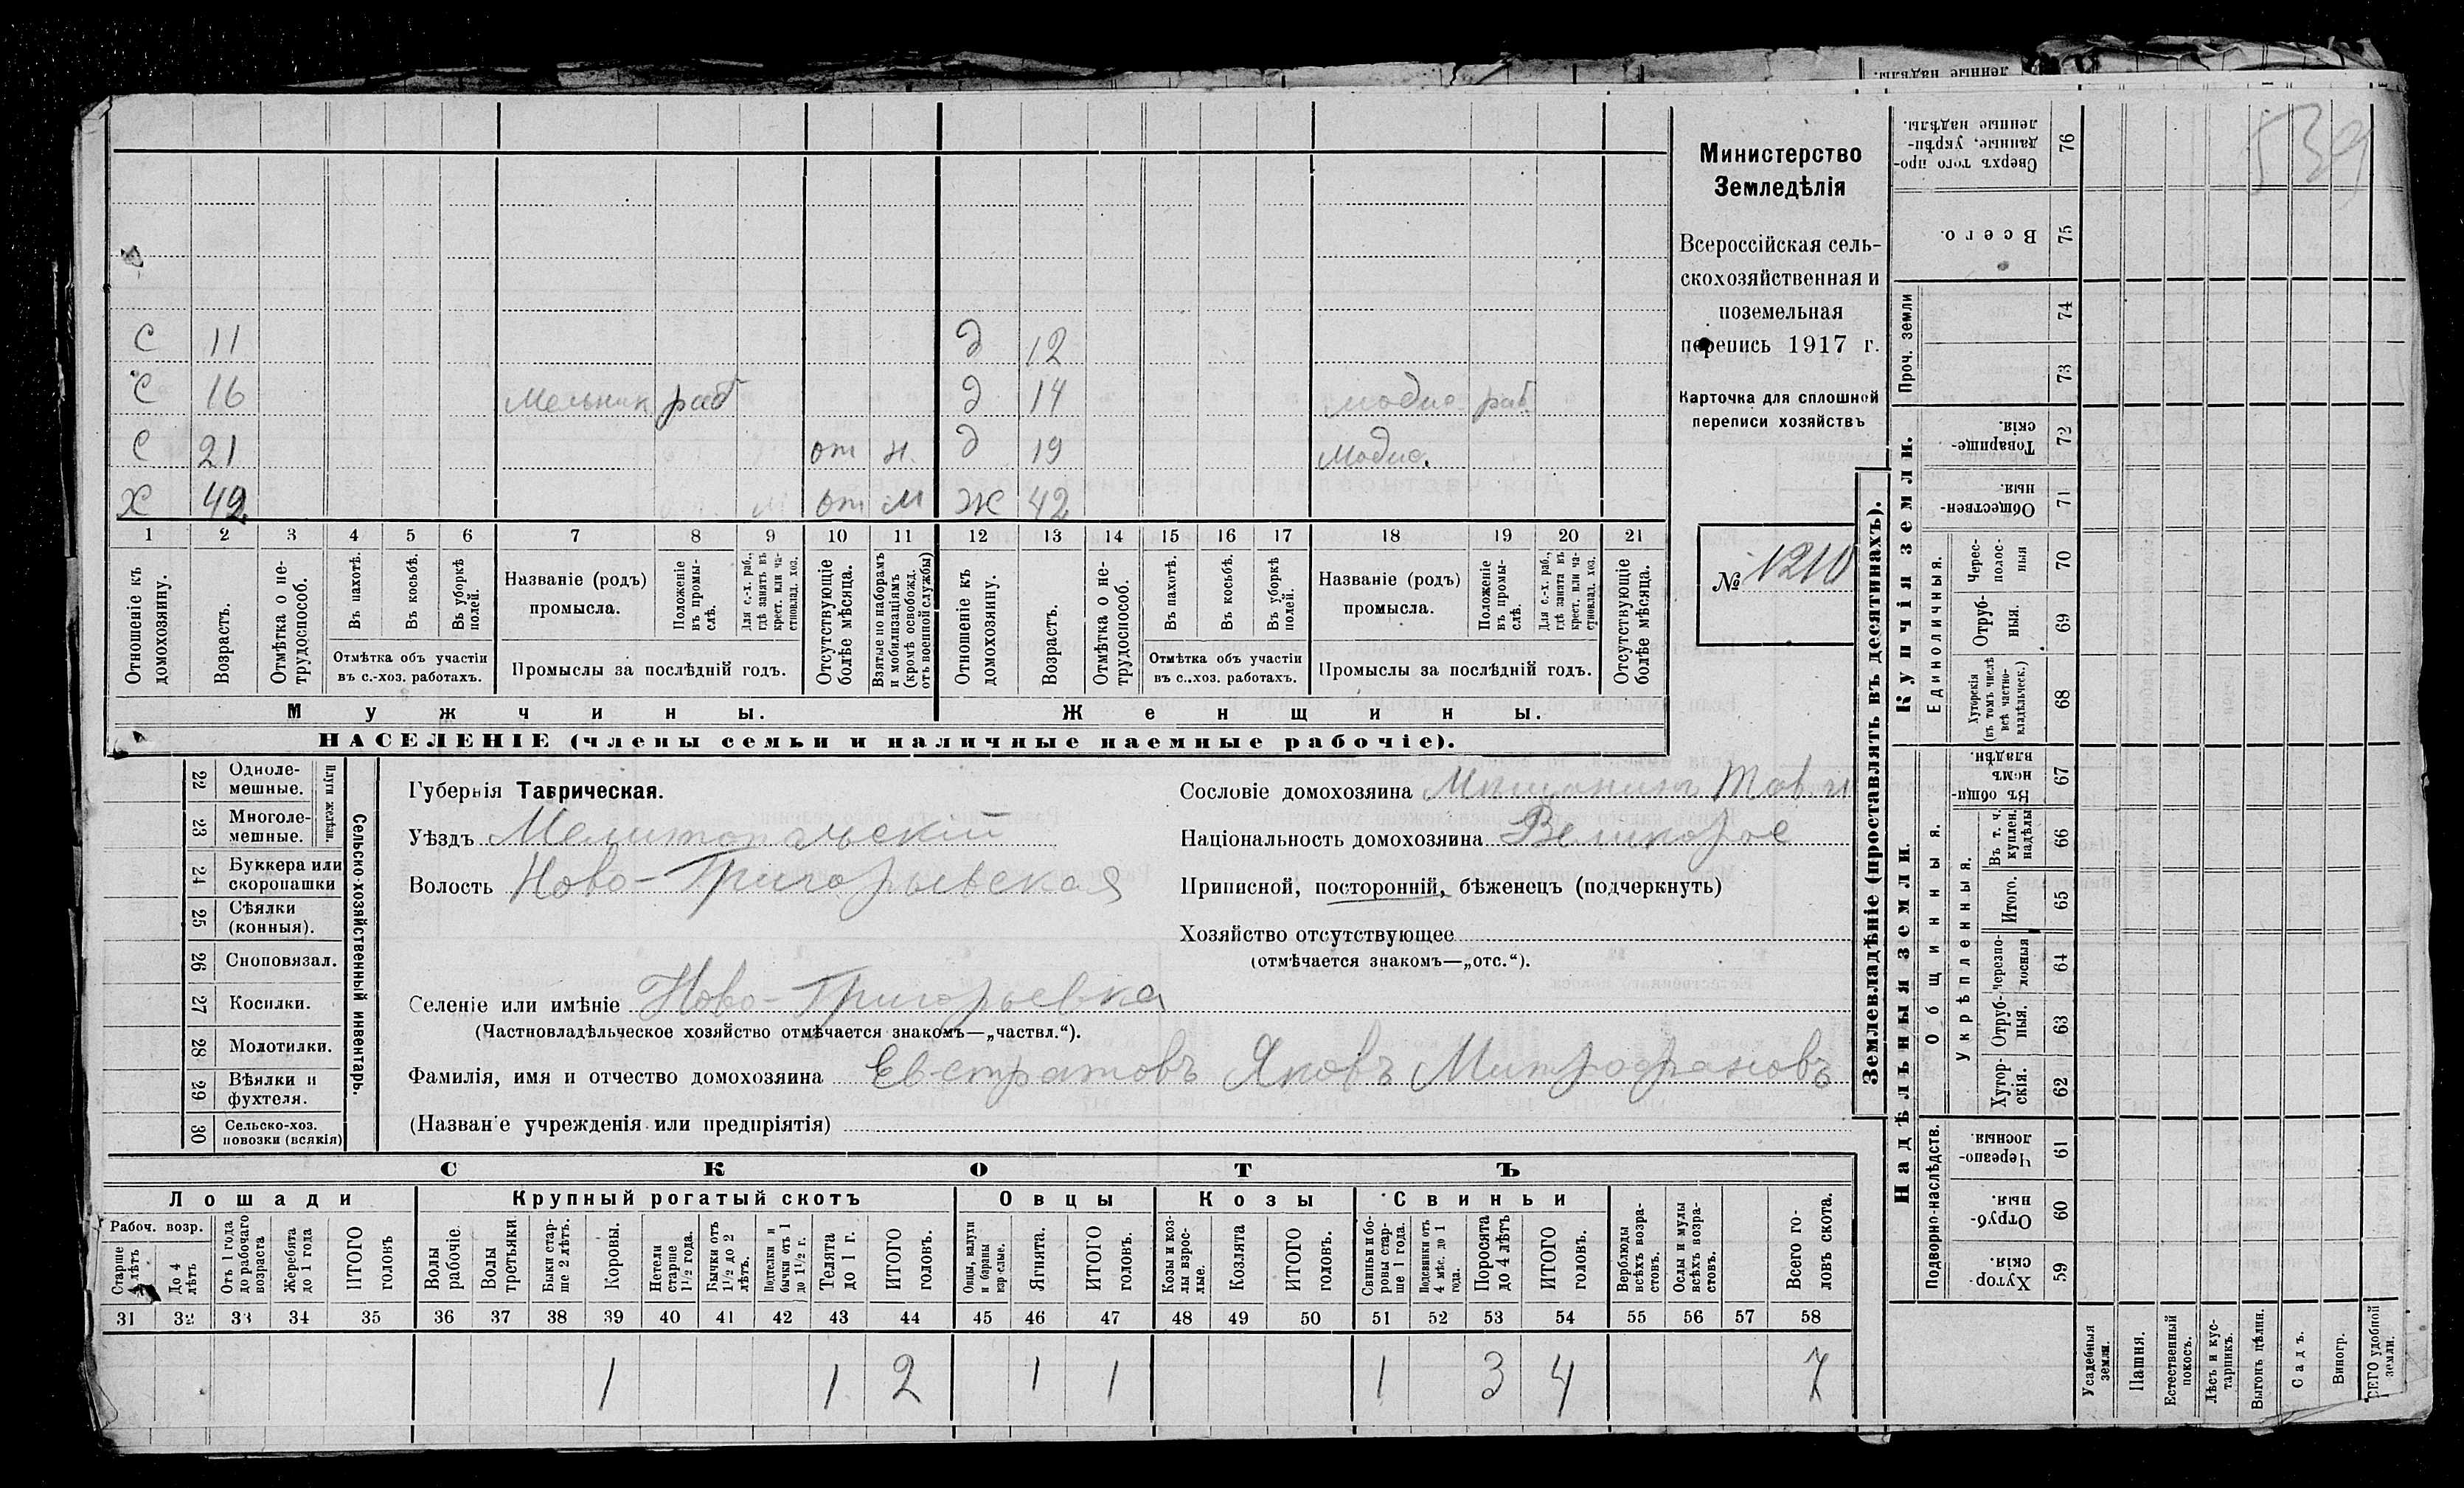 539
Министерство
Земледѣлія
Всероссійская сель-
скохозяйственная и
поземельная
перепись 1917 г.
Карточка для сплошной
переписи хозяйствъ
№ 1210
С 11 д 12
С 16 Мельник раб д 14 модис. раб.
С 21 от н. д 19 Модис.
Х 42 от м Ж 42
1 2 3 4 5 6 7 8 9 10 11 12 13 14 15 16 17 18 19 20 21
Отношеніе къ домохозяину.
Возрастъ.
Отмѣтка о не-трудоспособ.
Въ пахотѣ.
Въ косьбѣ.
Въ уборкѣ полей.
Отмѣтка объ участіи въ с.-хоз. работахъ.
Названіе (родъ) промысла.
Положеніе въ промы-слѣ.
Для с.-х. раб., гдѣ занятъ въ крест. или ча-стновлад. хоз.
Промыслы за послѣдній годъ.
Отсутствующіе болѣе мѣсяца.
Взятые по наборамъ и мобилизаціямъ (кромѣ освобожд. отъ военной службы)
Отношеніе къ домохозяину.
Возрастъ.
Отмѣтка о не-трудоспособ.
Въ пахотѣ.
Въ косьбѣ.
Въ уборкѣ полей.
Отмѣтка объ участіи въ с.-хоз. работахъ.
Названіе (родъ) промысла.
Положеніе въ промы-слѣ.
Для с.-х. раб., гдѣ занята въ крест. или ча-стновлад. хоз.
Промыслы за послѣдній годъ.
Отсутствующіе болѣе мѣсяца.
Мужчины. Женщины.
НАСЕЛЕНІЕ (члены семьи и наличные наемные рабочіе).
Сельско-хозяйственный инвентарь.
Плуги желѣзн.
22 Одноле-мешные.
23 Многоле-мешные.
24 Буккера или скоропашки
25 Сѣялки (конныя).
26 Сноповязал.
27 Косилки.
28 Молотилки.
29 Вѣялки и фухтеля.
30 Сельско-хоз. повозки (всякія)
Губернія Таврическая.
Уѣздъ Мелитопальскій
Волость Ново-Григорьевская
Селеніе или имѣніе Ново-Григорьевка
(Частновладѣльческое хозяйство отмѣчается знакомъ—„частвл.“).
Фамилія, имя и отчество домохозяина Евстратовъ Яковъ Митрофановъ
(Названіе учрежденія или предпріятія)
Сословіе домохозяина Мещанинъ Тав. г
Національность домохозяина Великорос
Приписной, посторонній, бѣженецъ (подчеркнуть)
Хозяйство отсутствующее
(отмѣчается знакомъ—„отс.“).
СКОТЪ
Лошади Крупный рогатый скотъ Овцы Козы Свиньи
Рабоч. возр.
Старше 4 лѣтъ
До 4 лѣтъ
Отъ 1 года до рабочаго возраста
Жеребята до 1 года
ИТОГО головъ
Волы рабочіе.
Волы третьяки
Быки стар-ше 2 лѣтъ.
Коровы.
Нетели старше 1½ года.
Бычки отъ 1½ до 2 лѣтъ.
Подтелки и бычки отъ 1 до 1½ г.
Телята до 1 г.
ИТОГО головъ.
Овцы, валухи и бараны взрослые.
Ягнята.
ИТОГО головъ.
Козы и коз-лы взрос-лые.
Козлята
ИТОГО головъ.
Свиньи и бо-ровы стар-ше 1 года.
Подсвинки отъ 4 мѣс. до 1 года.
Поросята до 4 лѣтъ
ИТОГО головъ.
Верблюды всѣхъ возра-стовъ.
Ослы и мулы всѣхъ возра-стовъ.
Всего го-ловъ скота.
31 32 33 34 35 36 37 38 39 40 41 42 43 44 45 46 47 48 49 50 51 52 53 54 55 56 57 58
1 1 2 1 1 1 3 4 7
Землевладѣніе (проставлять въ десятинахъ).
Купчія земли.
Надѣльныя земли.
Проч. земли
Единоличныя.
Общинныя.
Укрѣпленныя.
Подворно-наслѣдств.
Сверхъ того про-данные, укрѣп-ленные надѣлы. 76
Всего. 75
74
73
Товарище-скія. 72
Обществен-ныя. 71
Черес-полос-ныя 70
Отруб-ныя. 69
Хуторскія (въ томъ числѣ всѣ частно-владѣльческ.) 68
Въ общи-номъ владѣн. 67
Въ т. ч. куплен. надѣлы 66
Итого. 65
Черезпо-лосныя 64
Отруб-ныя. 63
Хутор-скія. 62
Черезпо-лосныя. 61
Отруб-ныя. 60
Хутор-скія. 59
Усадебныя земли.
Пашня.
Естественный покосъ.
Лѣсъ и кус-тарникъ.
Выгонъ цѣлин.
Садъ.
Виногр.
ВСЕГО удобной земли.